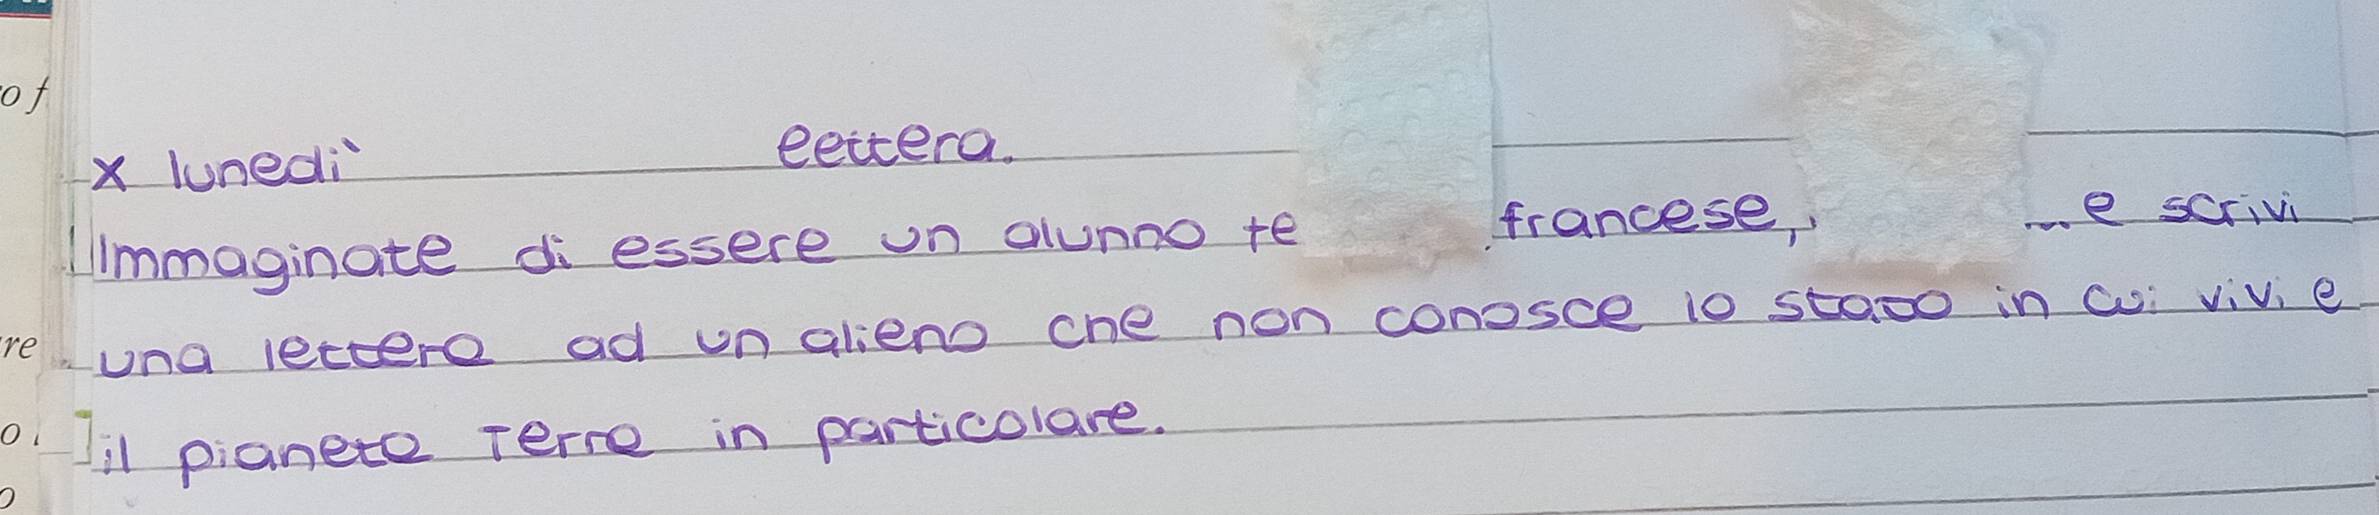 of
x lunedì lettera.
Immaginate di essere un alunno te francese, ... e scrivi
re una lettera ad un alieno che non conosce lo stato in cui vivi e
il pianeta Terra in particolare.